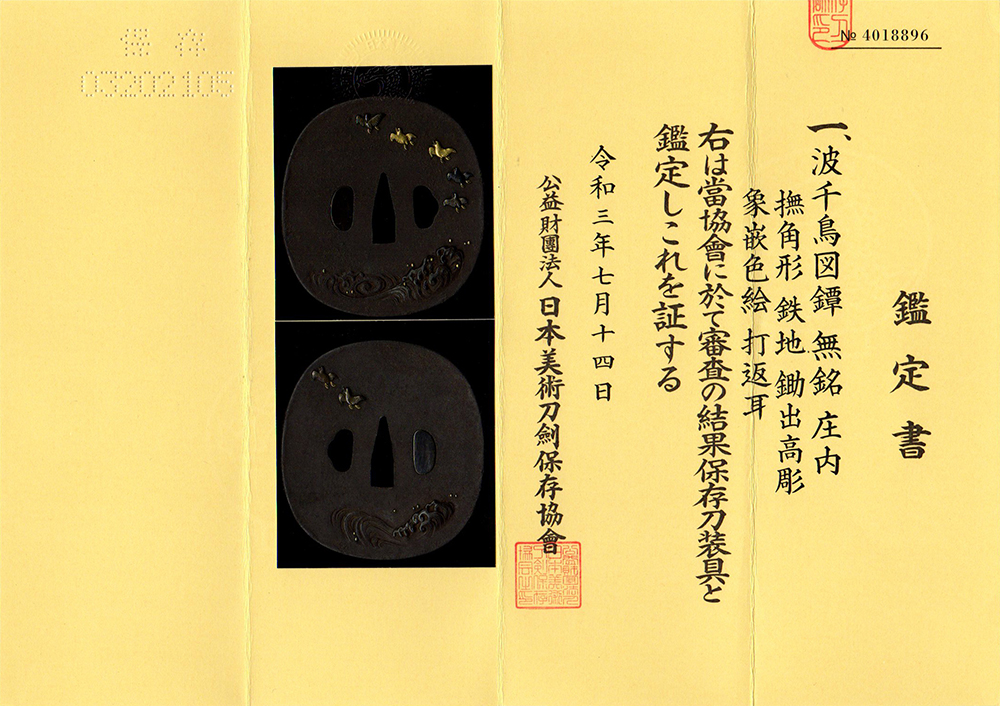 № 4018896
鑑定書
一、波千鳥図鐔 無銘 庄内
撫角形 鉄地 鋤出高彫
象嵌色絵 打返耳
右は當協會に於て審査の結果保存刀装具と
鑑定しこれを証する
令和三年七月十四日
公益財團法人 日本美術刀劍保存協會
保存
03202105